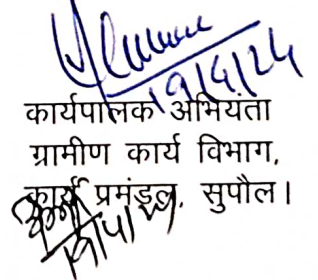 19/6/24
कार्यपालक अभियंता
ग्रामीण कार्य विभाग,
कार्य प्रमंडल, सुपौल।